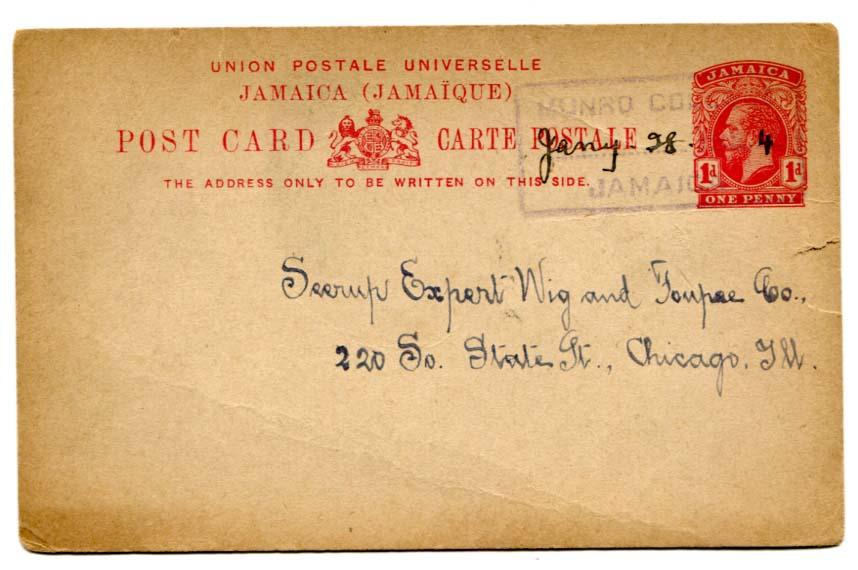 UNION POSTALE UNIVERSELLE
JAMAICA (JAMAÏQUE)
POST CARD CARTE POSTALE
THE ADDRESS ONLY TO BE WRITTEN ON THIS SIDE.
JAMAICA
1d 1d
ONE PENNY
MUNRO
Jany 28. 4
JAMAIC
Seerup Expert Wig and Toupee Co.,
220 So. State St., Chicago, Ill.